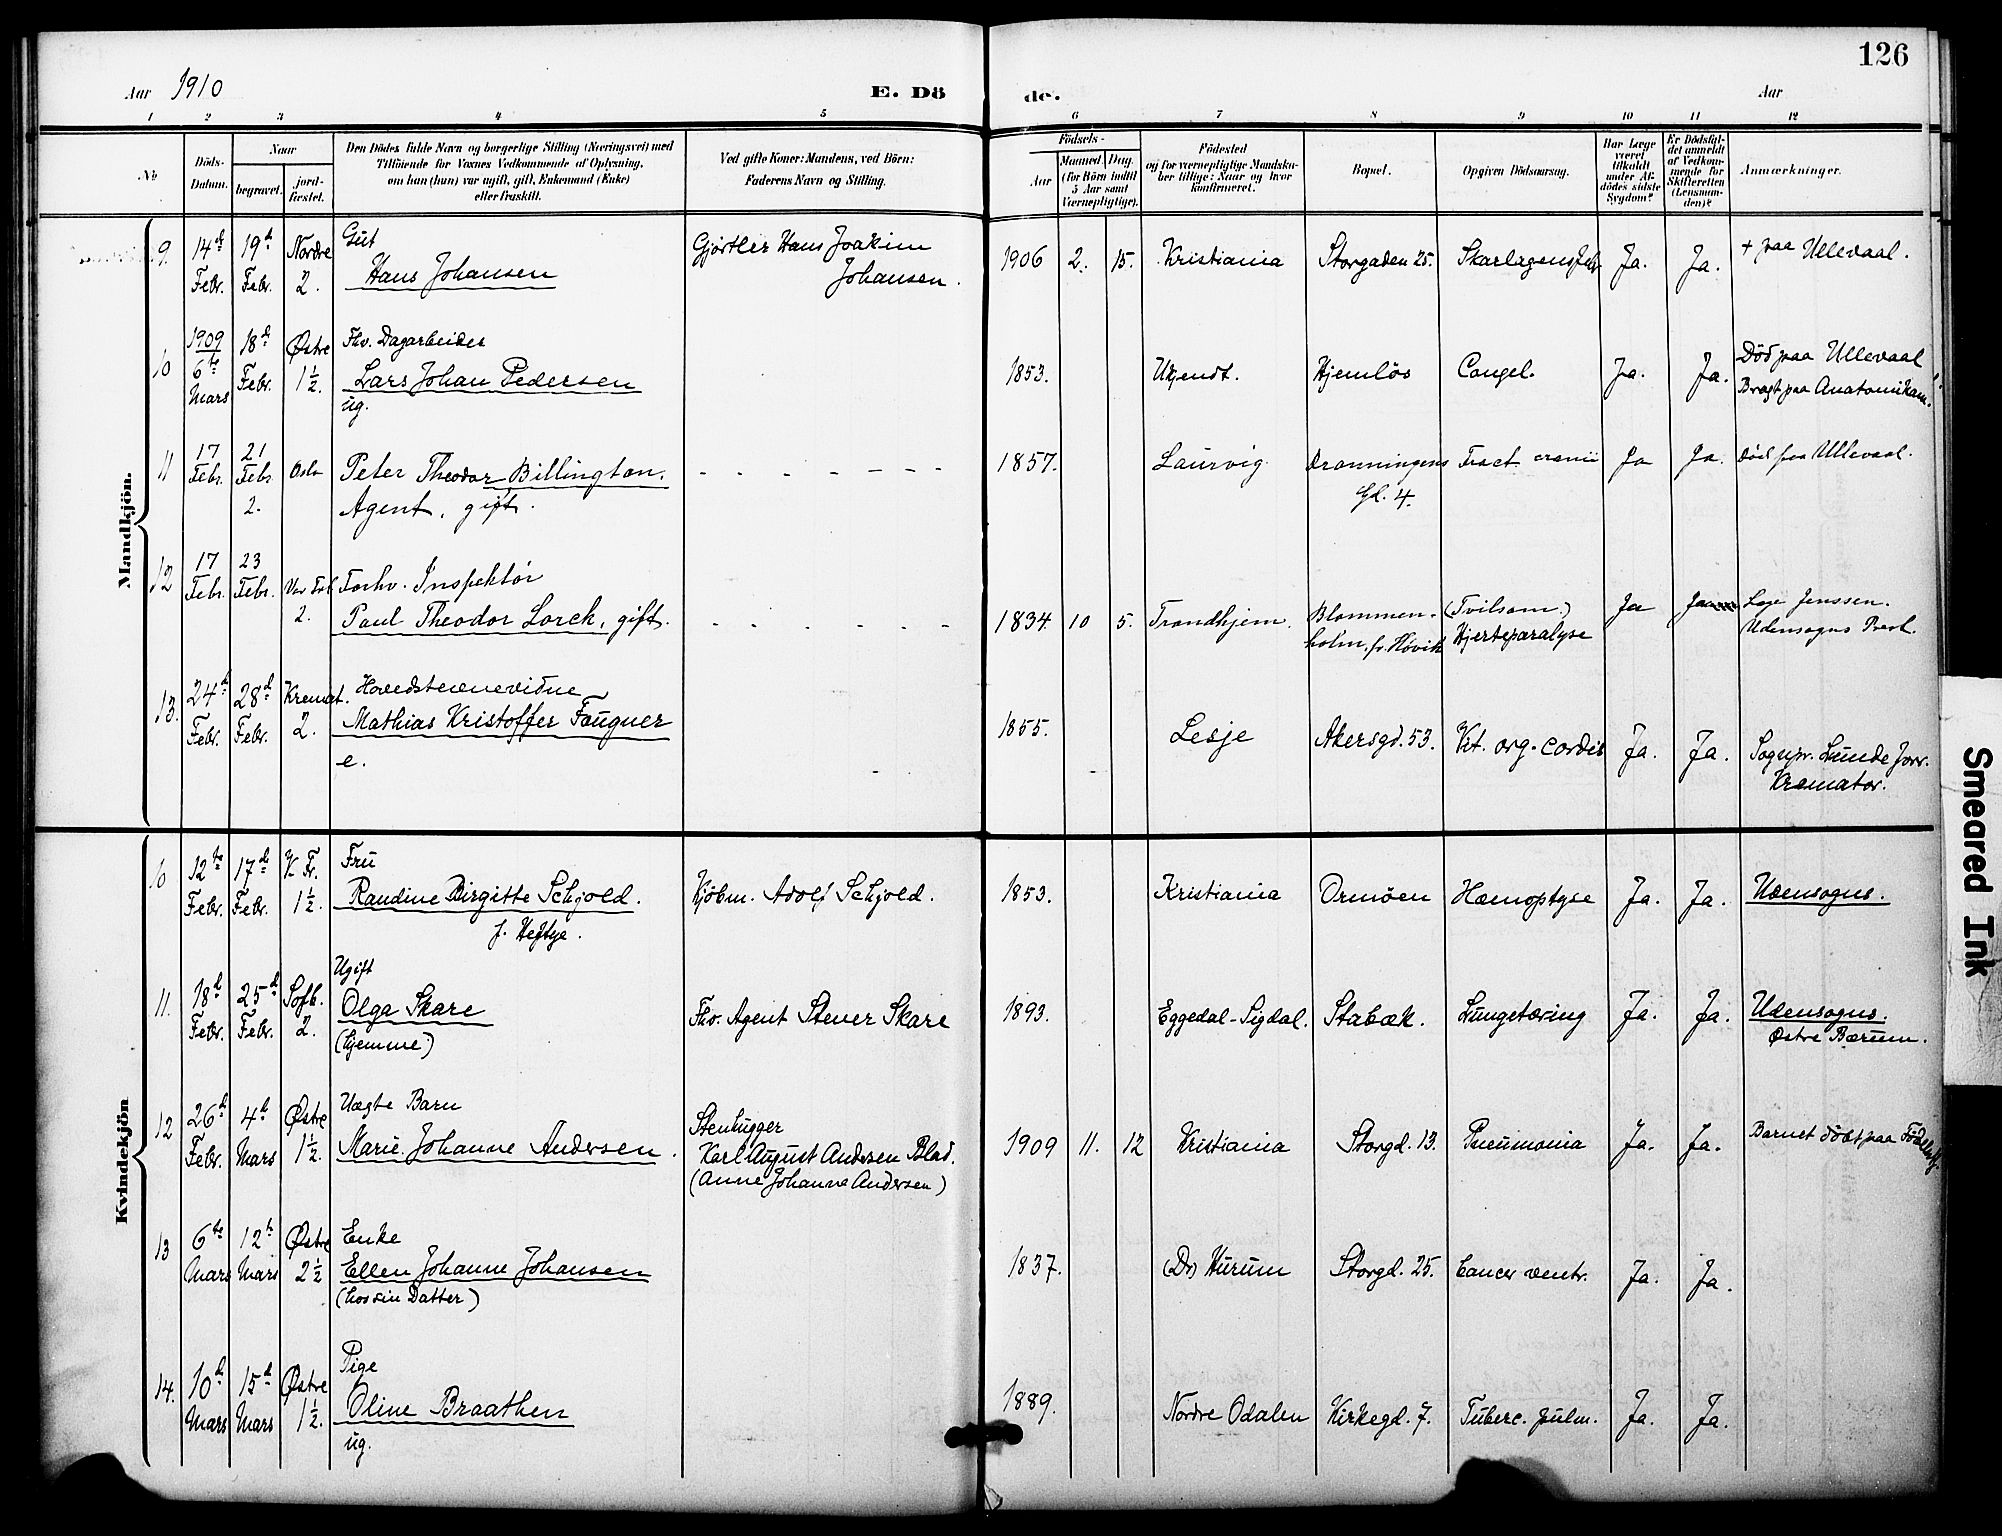 126
Aar 1910 E. Dö de. Aar
1 2 3 4 5 6 7 8 9 10 11 12
No
Döds-Datum.
Naar
begravet.
jord-fæstet.
Den Dödes fulde Navn og borgerlige Stilling (Næringsvei) med
Tilföiende for Voxnes Vedkommende af Oplysning,
om han (hun) var ugift, gift, Enkemand (Enke)
eller fraskilt.
Ved gifte Koner: Mandens, ved Börn:
Faderens Navn og Stilling.
Födsels-
Aar
Maaned. Dag.
(for Börn indtil
5 Aar samt
Værnepligtige).
Födested
og for værnepligtige Mandska-
ber tillige: Naar og hvor
konfirmeret.
Bopæl.
Opgiven Dödsaarsag.
Har Læge
været
tilkaldt
under Af-
dödes sidste
Sygdom?
Er Dödsfal-
det anmeldt
af Vedkom-
mende for
Skifteretten
(Lensman-
den)?
Anmærkninger.
Mandkjön.
9. 14d Febr. 19d Febr. Nordre 2. Gut
Hans Johansen
Gjørtler Hans Joakim
Johansen.
1906 2. 15. Kristiania Storgaden 25. Ja. Ja. + paa Ullevaal.
10 1909 6te Mars 18d Febr. Østre 1½. Fhv. Dagarbeider
Lars Johan Pedersen
ug.
1853. Ukjendt. Hjemløs Congel. Ja. Ja. Død paa Ullevaal
Bragt paa Anatomikam.
11 17 Febr. 21 Febr. 2. Oslo Peter Theodor Billington.
Agent, gift.
1857. Laurvig. Dronningens
Gd. 4.
Fract cranii Ja Ja. Død paa Ullevaal.
12 17 Febr. 23 Febr. Vor Frel 2. Forhv. Inspektör
Paul Theodor Lorck, gift.
1834. 10 5. Trondhjem. Blommen-
holm, pr. Høvik
(Tvilsom.)
Hjerteparalyse
Ja Ja Læge Jenssen.
Udensogns Præst.
13. 24d Febr. 28d Febr. Kremat. 2. Hovedstevnevidne
Mathias Kristoffer Faugner
e.
1855. Lesje Akersgd. 53. Vit. org. cordis Ja. Ja. Sognpr. Lunde Jorr.
Kremator.
Kvindekjön
10 12te Febr. 17d Febr. V. Fr. 1½. Fru
Randine Birgitte Schjold.
f. Heftye.
Kjøbm. Adolf Schjold.
1853. Kristiania Ormøen Hæmoptyse Ja. Ja. Udensogns.
11. 18d Febr. 25d Febr. Sofb. 2. Ugift
Olga Skare
(hjemme)
Fhv. Agent Stener Skare
1893. Eggedal-Sigdal. Stabæk. Lungetæring Ja. Ja. Udensogns.
Østre Bærum.
12 26d Febr. 4d Mars Østre 1½. Uægte Barn
Marie Johanne Andersen.
Stenhugger
Karl August Andersen Blad.
(Anne Johanne Andersen)
1909 11. 12 Kristiania Storgd. 13. Pneumonia Ja. Ja. Barnet døbt paa Fødselsst.
13 6te Mars 12te Mars Østre 2½ Enke
Ellen Johanne Johansen
(hos sin Datter)
1837. (Dr) Hurum Storgd. 25. Cancer ventr. Ja. Ja.
14. 10d Mars 15d Mars Østre 1½. Pige
Oline Braathen
ug.
1889. Nordre Odalen Kirkegd. 7. Tuberc. pulm. Ja. Ja.
Smeared Ink